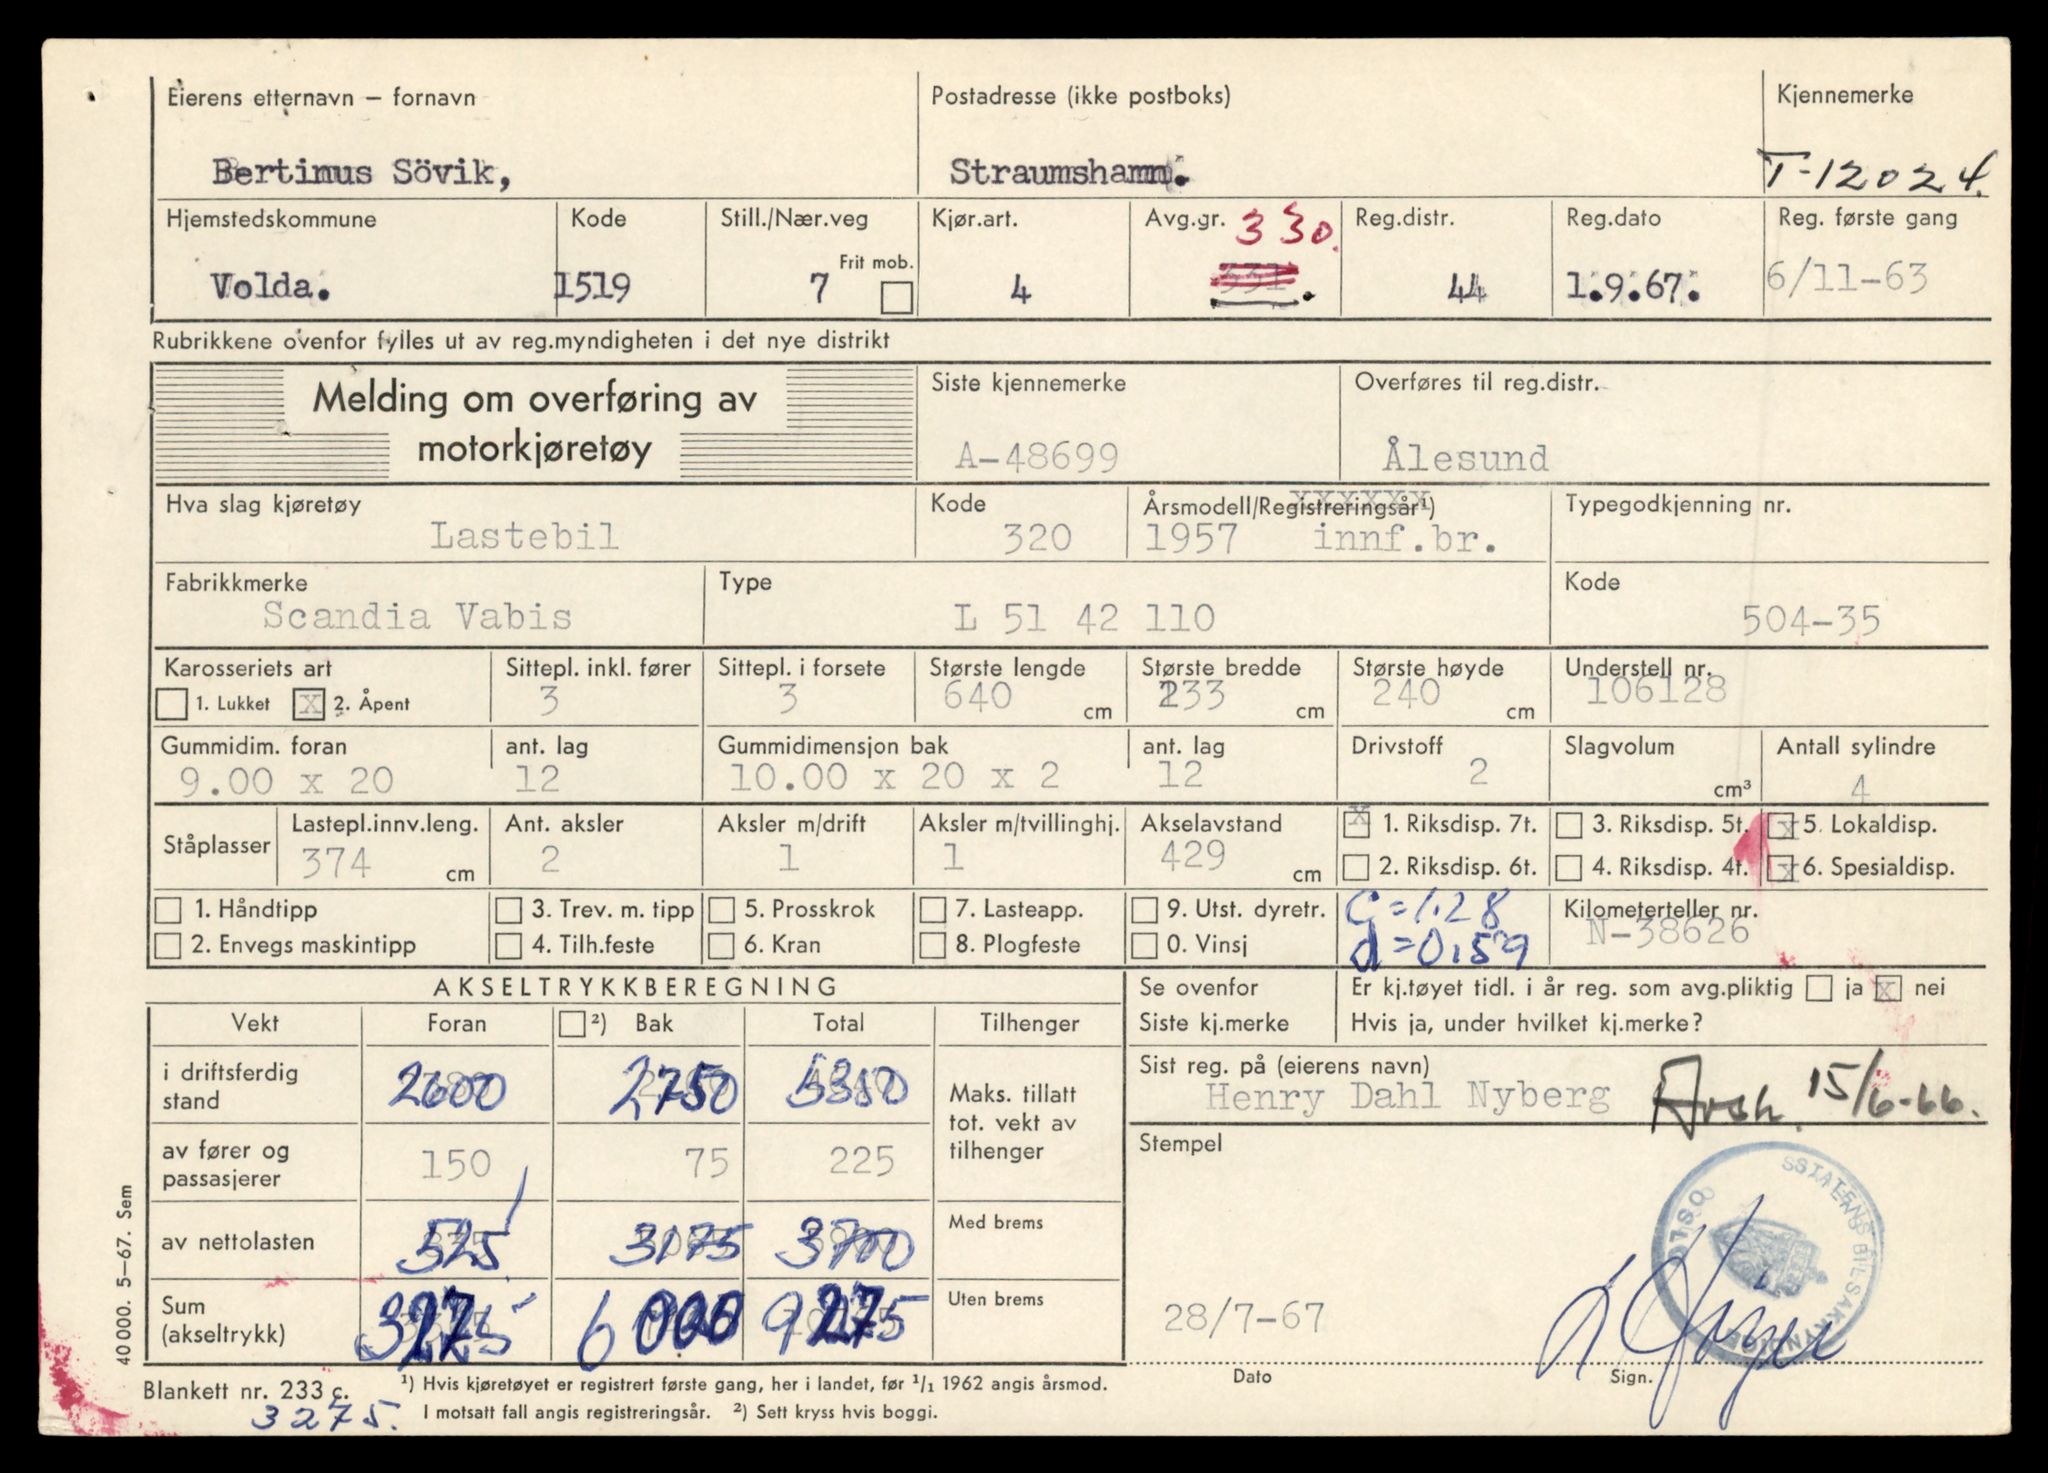 Eierens etternavn – fornavn Postadresse (ikke postboks) Kjennemerke
Bertinus Sövik, Straumshamn. T-12024.
Hjemstedskommune Kode Still./Nær.veg Kjør.art. Avg.gr. 330. Reg.distr. Reg.dato Reg. første gang
Frit mob.
Volda. 1519 7 4 331. 44 1.9.67. 6/11-63
Rubrikkene ovenfor fylles ut av reg.myndigheten i det nye distrikt
Melding om overføring av
motorkjøretøy
Siste kjennemerke Overføres til reg.distr.
A-48699 Ålesund
Hva slag kjøretøy Kode Årsmodell/Registreringsår¹) Typegodkjenning nr.
Lastebil 320 1957 innf.br.
Fabrikkmerke Type Kode
Scandia Vabis L 51 42 110 504-35
Karosseriets art Sittepl. inkl. fører Sittepl. i forsete Største lengde Største bredde Største høyde Understell nr.
1. Lukket X 2. Åpent 3 3 640 cm 233 cm 240 cm 106128
Gummidim. foran ant. lag Gummidimensjon bak ant. lag Drivstoff Slagvolum Antall sylindre
9.00 x 20 12 10.00 x 20 x 2 12 2 cm³ 4
Ståplasser Lastepl.innv.leng. Ant. aksler Aksler m/drift Aksler m/tvillinghj. Akselavstand
374 cm 2 1 1 429 cm
x 1. Riksdisp. 7t. 3. Riksdisp. 5t. x 5. Lokaldisp.
2. Riksdisp. 6t. 4. Riksdisp. 4t. x 6. Spesialdisp.
1. Håndtipp 3. Trev. m. tipp 5. Prosskrok 7. Lasteapp. 9. Utst. dyretr. C=1.28 Kilometerteller nr.
2. Envegs maskintipp 4. Tilh.feste 6. Kran 8. Plogfeste 0. Vinsj d=0,59 N-38626
AKSELTRYKKBEREGNING
Vekt Foran ²) Bak Total Tilhenger
i driftsferdig stand 2600 2750 5350
Maks. tillatt tot. vekt av tilhenger
av fører og passasjerer 150 75 225
av nettolasten 525 3175 3700 Med brems
Sum (akseltrykk) 3275 6000 9275 Uten brems
Se ovenfor Er kj.tøyet tidl. i år reg. som avg.pliktig ja x nei
Siste kj.merke Hvis ja, under hvilket kj.merke?
Sist reg. på (eierens navn)
Henry Dahl Nyberg 15/6-66.
Stempel
STATENS BILSAKKYNDIGE
OSLO
28/7-67
Dato Sign.
40 000. 5–67. Sem
Blankett nr. 233 c. ¹) Hvis kjøretøyet er registrert første gang, her i landet, før 1/1 1962 angis årsmod.
3275. I motsatt fall angis registreringsår. ²) Sett kryss hvis boggi.